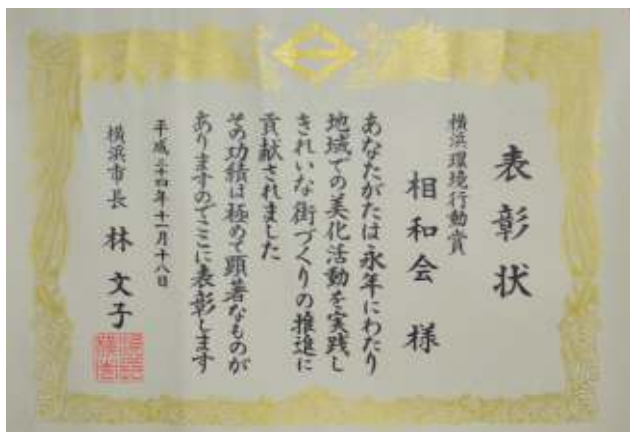 表彰状
相和会 様
横浜環境行動賞
あなたがたは永年にわたり
地域での美化活動を実践し
きれいな街づくりの推進に
貢献されました
その功績は極めて顕著なものが
ありますのでここに表彰します
平成二十四年十一月十八日
横浜市長 林 文子